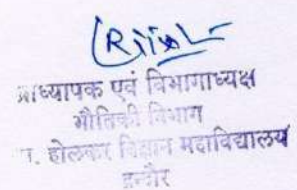 प्राध्यापक एवं विभागाध्यक्ष
भौतिकी विभाग
होलकर विज्ञान महाविद्यालय
इन्दौर